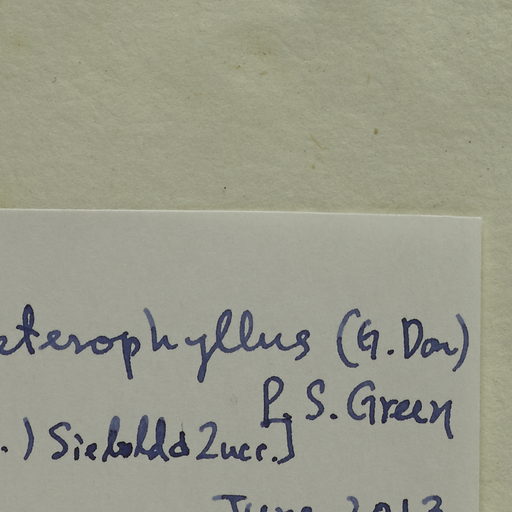 eterophyllus (G. Don)
P. S. Green
.) Siebold & Zucc.]
June 2013